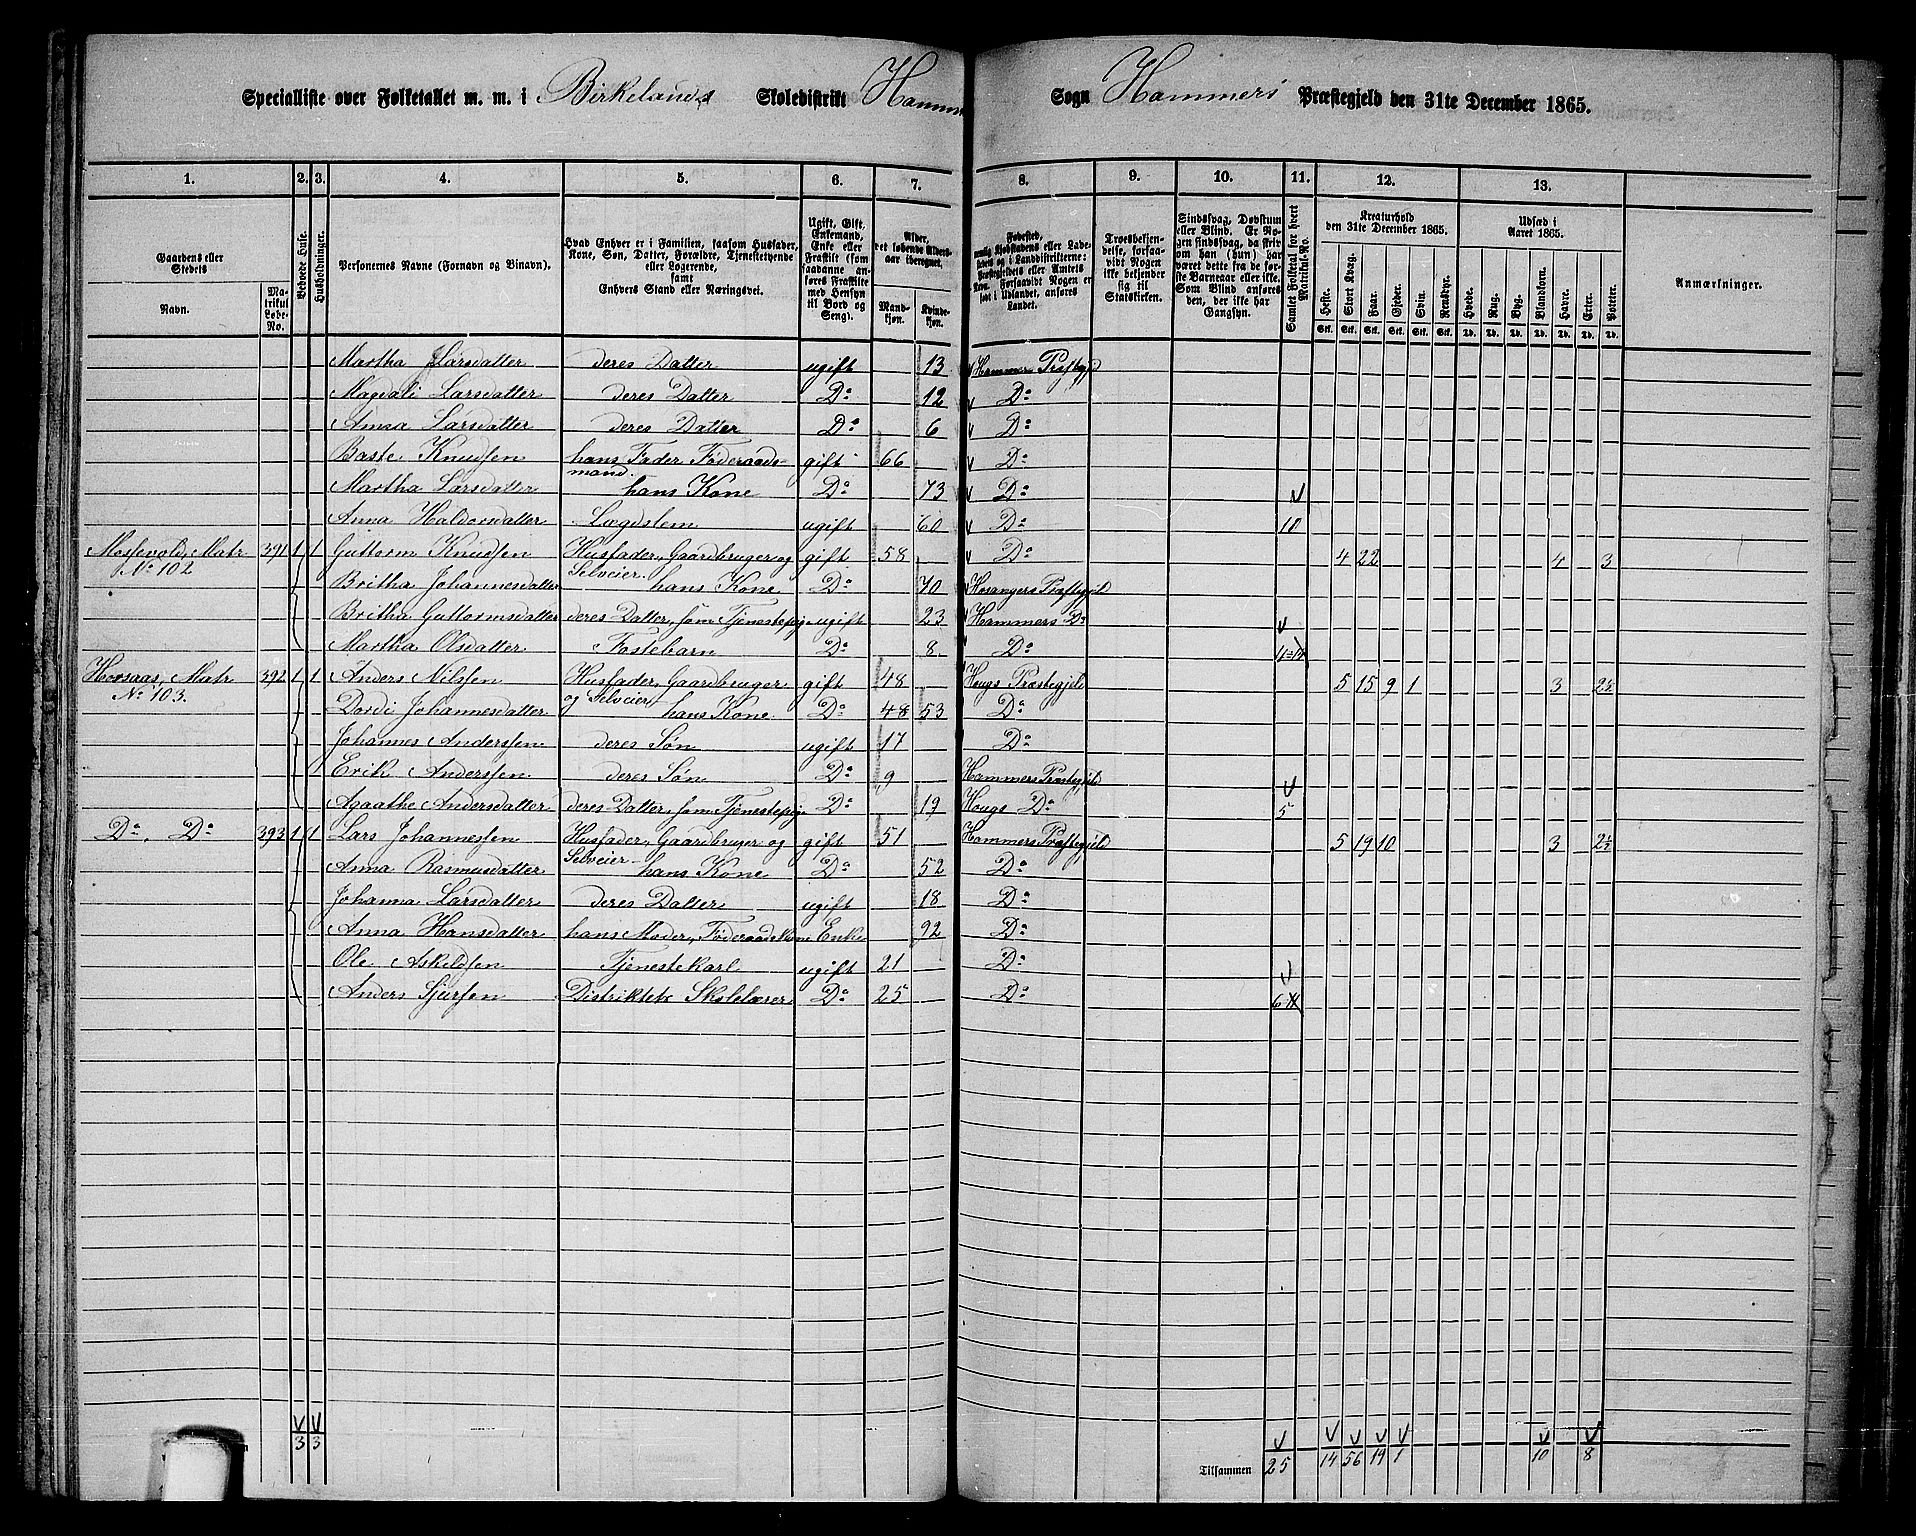 Specialliste over Folketallet m. m. i Birkelands Skoledistrikt Hammers Sogn Hammers Præstegjeld den 31te December 1865.
1. 2. 3. 4. 5. 6. 7. 8. 9. 10. 11. 12. 13.
Gaardens eller Stedets
Navn.
Matrikul Løbe-No.
Beboede Huse.
Husholdninger.
Personernes Navne (Fornavn og Binavn).
Hvad Enhver er i Familien, saasom Husfader, Kone, Søn, Datter, Forældre, Tjenestetyende eller Logerende, samt Enhvers Stand eller Næringsvei.
Ugift, Gift, Enkemand, Enke eller Fraskilt (som saadanne anføres Fraskilte med Hensyn til Bord og Seng).
Alder, det løbende Alders-aar iberegnet.
Mandkjøn.
Kvindekjøn.
Fødested, nemlig Kjøbstadens eller Ladestedets og i Landdistrikterne: Præstegjeldets eller Amtets Navn. Forsaavidt Nogen er født i Udlandet, anføres Landet.
Troesbekjendelse, forsaavidt Nogen ikke bekjender sig til Statskirken.
Sindssvag, Døvstum eller Blind. Er Nogen sindssvag, da skriv om han (hun) har været dette fra de første Barneaar eller ikke. Som Blind anføres den, der ikke har Gangsyn.
Samlet Folketal for hvert Matrikul-No.
Kreaturhold den 31te December 1865.
Heste. Stort Kvæg. Faar. Gjeder. Svin. Rensdyr.
Stk. Stk. Stk. Stk. Stk. Stk.
Udsæd i Aaret 1865.
Hvede. Rug. Byg. Blandkorn. Havre. Erter. Poteter.
Td. Td. Td. Td. Td. Td. Td.
Anmærkninger.
Martha Larsdatter deres Datter ugift 13 Hammer Præstegjd
Magdali Larsdatter deres Datter Do 12 Do
Anna Larsdatter deres Datter Do 6 Do
Baste Knudsen hans Fader Føderaads- gift 66 Do
mand.
Martha Larsdatter hans Kone Do 73 Do
Anna Haldorsdatter Lægdslem ugift 60 Do 10
Mossevold, Matr 391 1 1 Guttorm Knudsen Husfader, Gaardbruger og gift 58 Do 4 22 4 3
No 102 Selveier
Britha Johannesdatter hans Kone Do 70 Hosangers Præstegjeld
Britha Guttormsdatter deres Datter, som Tjenestepige ugift 23 Hammers Do
Martha Olsdatter Fostebarn Do 8 Do
Hopsaas, Matr 392 1 1 Anders Nilsen Husfader, Gaardbruger gift 48 Hougs Præstegjeld 5 15 9 1 3 2½
No 103. og Selveier
Dordi Johannesdatter hans Kone Do 48 53 Do
Johannes Anderssen deres Søn ugift 17 Do
Erik Anderssen deres Søn Do 9 Hammers Præstegjeld
Agaathe Andersdatter deres Datter, som Tjenestepige Do 19 Hougs Do 5
Do. Do 393 1 1 Lars Johannessen Husfader, Gaardbruger og gift 51 Hammers Præstegjeld 5 19 10 3 2½
Selveier
Anna Rasmusdatter hans Kone Do 52 Do
Johanna Larsdatter deres Datter ugift 18 Do
Anna Hansdatter hans Moder, Føderaadskone Enke 92 Do
Ole Askildsen Tjenestekarl ugift 21 Do
Anders Sjursen Distriktets Skolelærer Do 25 Do 6
3 3
Tilsammen 25 14 56 19 1 10 8